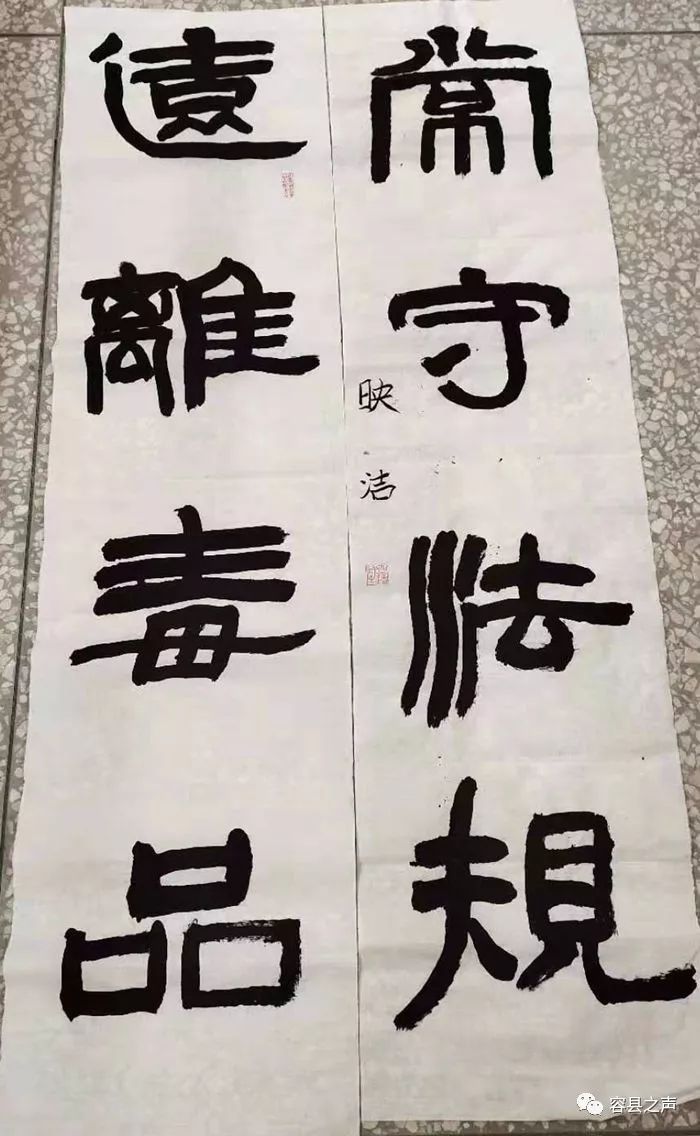 常守法規
遠離毒品
映洁
容县之声